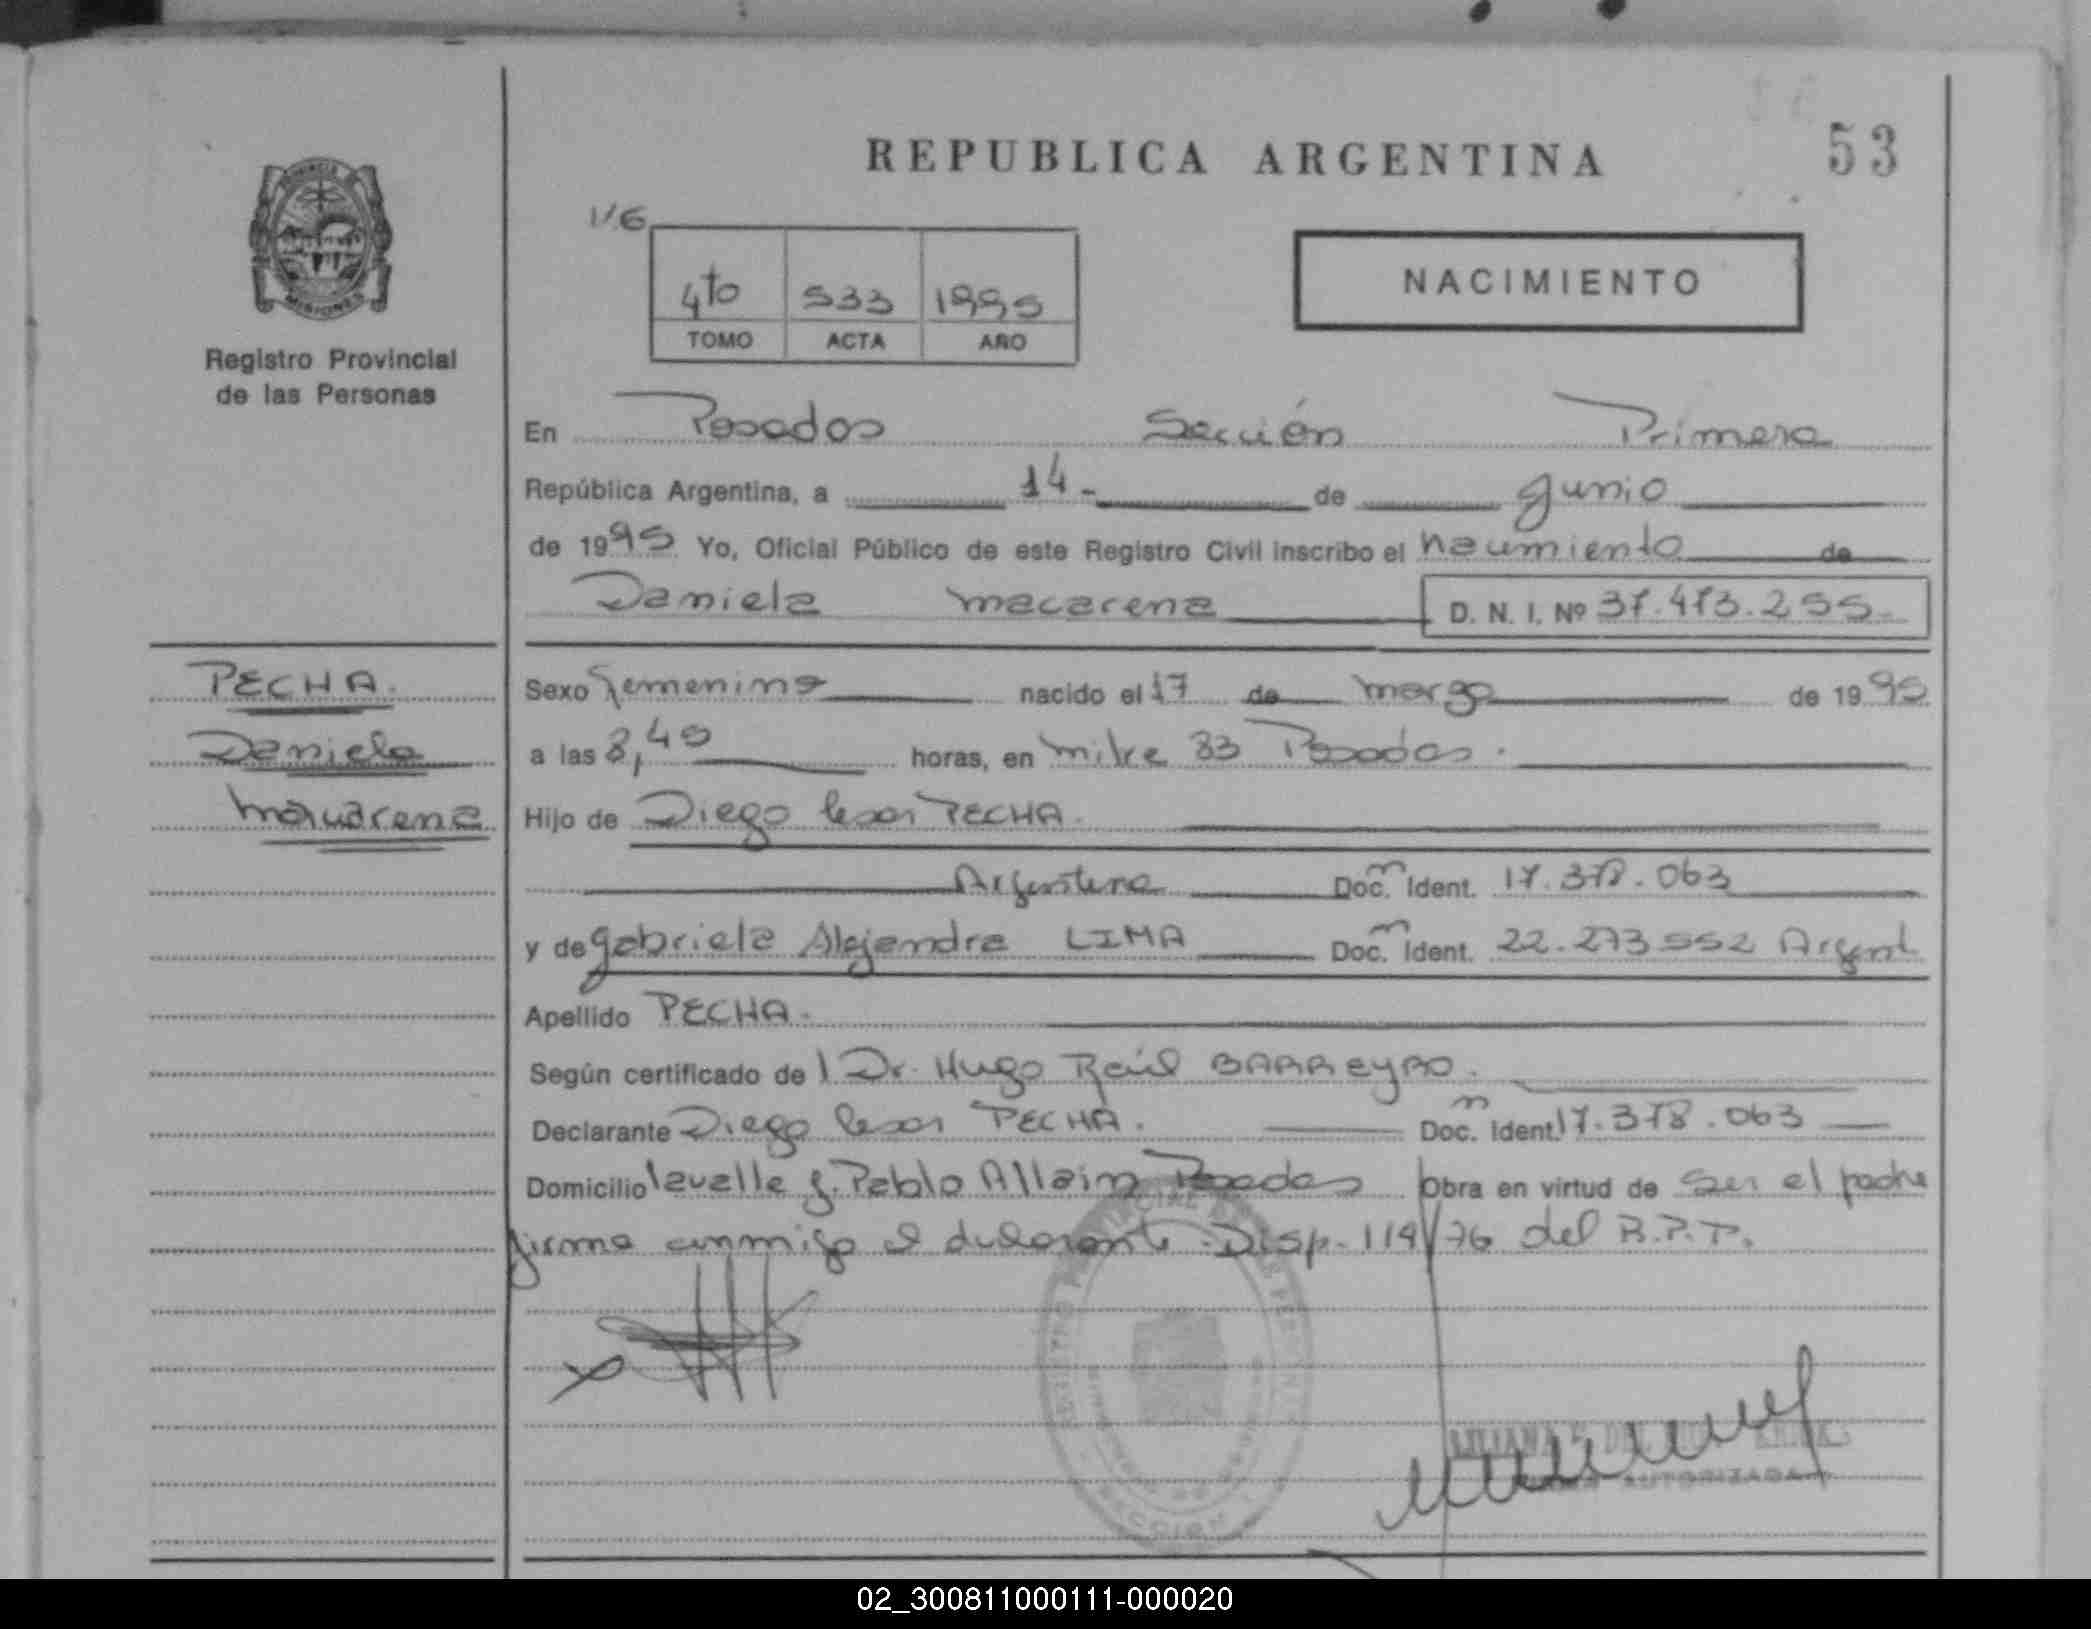 53
REPUBLICA ARGENTINA
PROVINCIA DE
MISIONES
Registro Provincial
de las Personas
V.G
4to 533 1995
TOMO ACTA AÑO
NACIMIENTO
En Posadas Sección Primera
República Argentina, a 14- de Junio
de 1995 Yo, Oficial Público de este Registro Civil inscribo el nacimiento de
Daniela Macarena D. N. I. Nº 37.473.255.-
PECHA.
Daniela
Macarena
Sexo femenino nacido el 17 de marzo de 1995
a las 8,45 horas, en Mitre 33 Posadas.
Hijo de Diego Cesar PECHA.
Argentino Doc. Ident. 17.378.063
y de Gabriela Alejandra LIMA Doc. Ident. 22.273.552 Argent
Apellido PECHA.
Según certificado del Dr. Hugo Raúl BARREYRO.
Declarante Diego Cesar PECHA. Doc. Ident. 17.378.063
Domicilio Lavalle y Pablo Allain Posadas Obra en virtud de ser el padre
firma conmigo el declarante. Disp. 114/76 del R.P.P.
AUTORIZADA
02_300811000111-000020